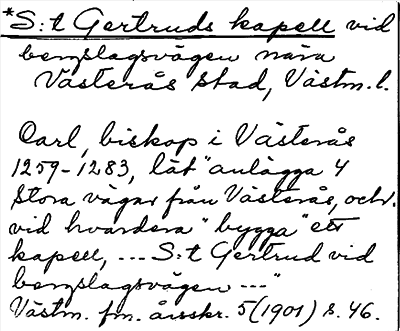 *S:t Gertruds kapell vid
bergslagsvägen nära
Västerås stad, Västm. l.
Carl, biskop i Västerås
1259-1283, lät "anlägga 4
stora vägar från Västerås, och
vid hvardera" bygga "ett
kapell, ... S:t Gertrud vid
bergslagsvägen ---"
Västm. fm. årsskr. 5 (1901) s. 46.